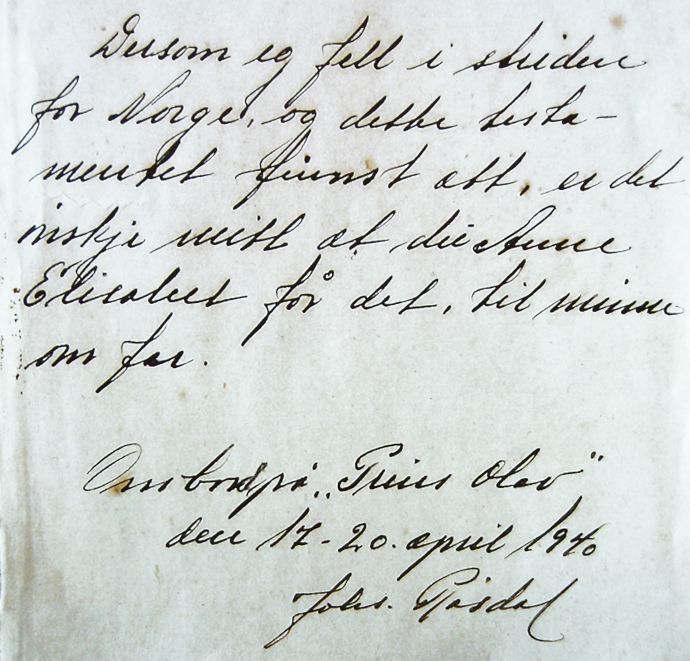 Dersom eg fell i striden
for Norge, og dette testa-
mentet finnst att, er det
ynskje mitt at du Anne
Elisabet får det, til minne
om far.
Ombord på „Prins Olav"
den 17-20. april 1940
Johs. Råsdal